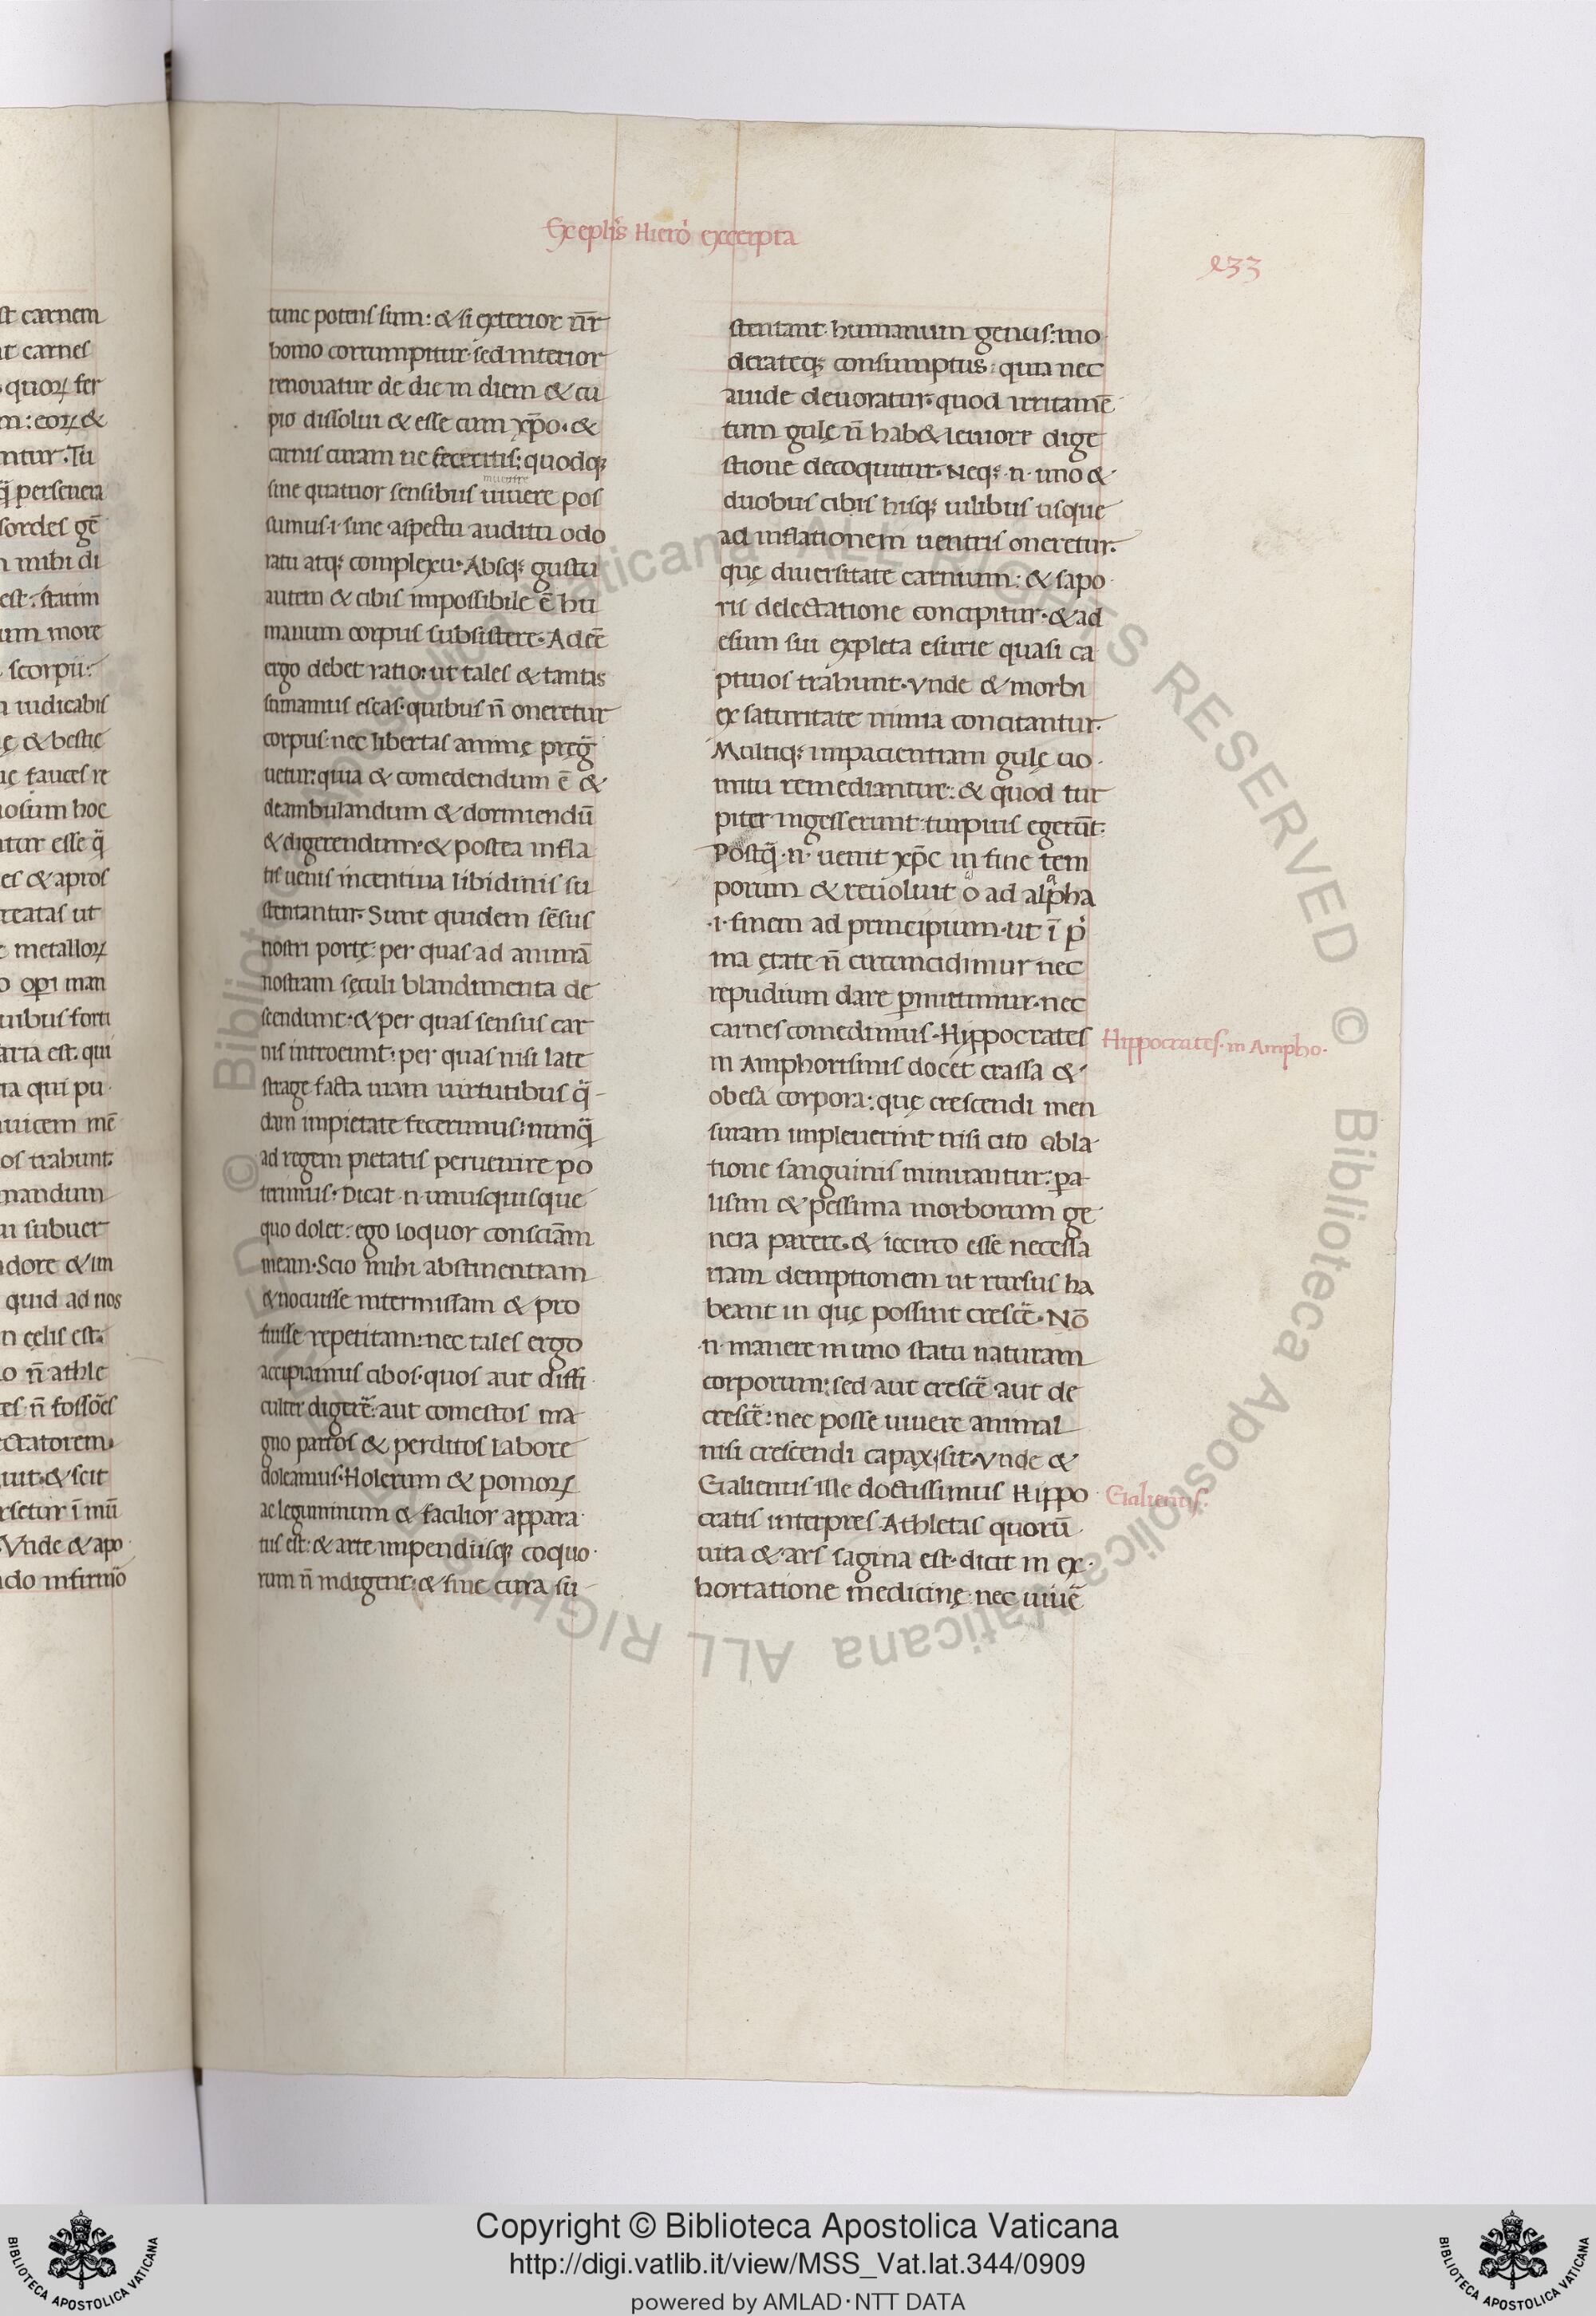 Ex eplis Hiero excerpta
433
st carnem
nt carnes
quoꝝ fer
m: eoꝝ &
ntur. Tu
q̃ persevera
sordes gē
n mihi di
est: statim
um more
scorpii:
n iudicabis
ę & bestię
uę fauces re
iosum hoc
ntur esse q̃
es & apros
reatas ut
t metalloꝝ
o opi man
uribus forti
aria est. qui
ria qui pu
uicem mē
os trahunt
mandum
n subuer
dore & im
quid ad nos
n cęlis est.
o n̄ athle
es n̄ fossões
ectatorem.
uit. & scit
rsetur ī mū
Vnde & apo
do infirmõ
tunc potens sum: & si exterior nr̄
homo corrumpitur. sed interior
renouatur de die in diem & cu
pio dissolui & esse cum xp̄o. &
carnis curam ne feceritis: quodqꝫ
sine quatuor sensibus uiuere pos
sumus. i. sine aspectu auditu odo
ratu atqꝫ complexu. Absqꝫ gustu
autem & cibis impossibile ē hu
manum corpus subsistere. Adeē
ergo debet ratio: ut tales & tantas
sumamus escas. quibus n̄ oneretur
corpus. nec libertas animę pręg̃
uetur: quia & comedendum ē &
deambulandum & dormiendū
& digerendum. & postea infla
tis uenis incentiua libidinis su
stentantur. Sunt quidem sēsus
nostri portę: per quas ad animā
nostram sęculi blandimenta de
scendunt: & per quas sensus car
nis introeunt: per quas nisi late
strage facta uiam uirtutibus q̃
dam impietate fecerimus: nunq̃
ad regem pietatis peruenire po
terimus. Dicat .n. unusquisque
quo dolet: ego loquor consciām
meam. Scio mihi abstinentiam
& nocuisse intermissam & pro
fuisse repetitam: nec tales ergo
accipiamus cibos. quos aut diffi
culter digerē: aut comestos ma
gno partos & perditos labore
doleamus. Holerum & pomoꝝ
ac leguminum & facilior appara
tus est: & arte impendiisqꝫ coquo
rum n̄ indigent: & sine cura su
stentant humanum genus: mo
derateqꝫ consumptus: quia nec
auide deuoratur. quod irritamē
tum gulę n̄ hab& leuiore dige
stione decoquitur. Neqꝫ .n. uno &
duobus cibis hisqꝫ uilibus usque
ad inflationem uentris oneretur.
quę diuersitate carnium: & sapo
ris delectatione concipitur. & ad
esum sui expleta esurie quasi ca
ptiuos trahunt. Vnde & morbi
ex saturitate nimia concitantur.
Multiqꝫ impacientiam gulę uo
mitu remediantur: & quod tur
piter ingesserunt: turpius egerūt:
Postq̃ .n. uenit xp̄c in fine tem
porum & reuoluit o ad alpha
.i. finem ad principium. ut ī p̃
ma ętate n̄ circumcidimur nec
repudium dare p̲mittimur. nec
carnes comedimus. Hyppocrates
in Amphorismis docet crassa &
obesa corpora: quę crescendi men
suram impleuerint nisi cito abla
tione sanguinis minuantur: p̲a
lisim & pessima morborum ge
nera parere. & iccirco esse necessa
riam demptionem ut rursus ha
beant in quę possint crescē. Nō
.n. manere in uno statu naturam
corporum: sed aut crescē aut de
crescē: nec posse uiuere animal
nisi crescendi capax sit. Vnde &
Galienus ille doctissimus Hippo
cratis interpres. Athletas quorū
uita & ars sagina est. dicit in ex
hortatione medicinę. nec uiuē
Hippocrates. in Ampho.
Galienus.
© Biblioteca Apostolica Vaticana ALL RIGHTS RESERVED
© Biblioteca Apostolica Vaticana ALL RIGHTS RESERVED
Copyright © Biblioteca Apostolica Vaticana
http://digi.vatlib.it/view/MSS_Vat.lat.344/0909
powered by AMLAD·NTT DATA
BIBLIOTECA APOSTOLICA VATICANA
BIBLIOTECA APOSTOLICA VATICANA